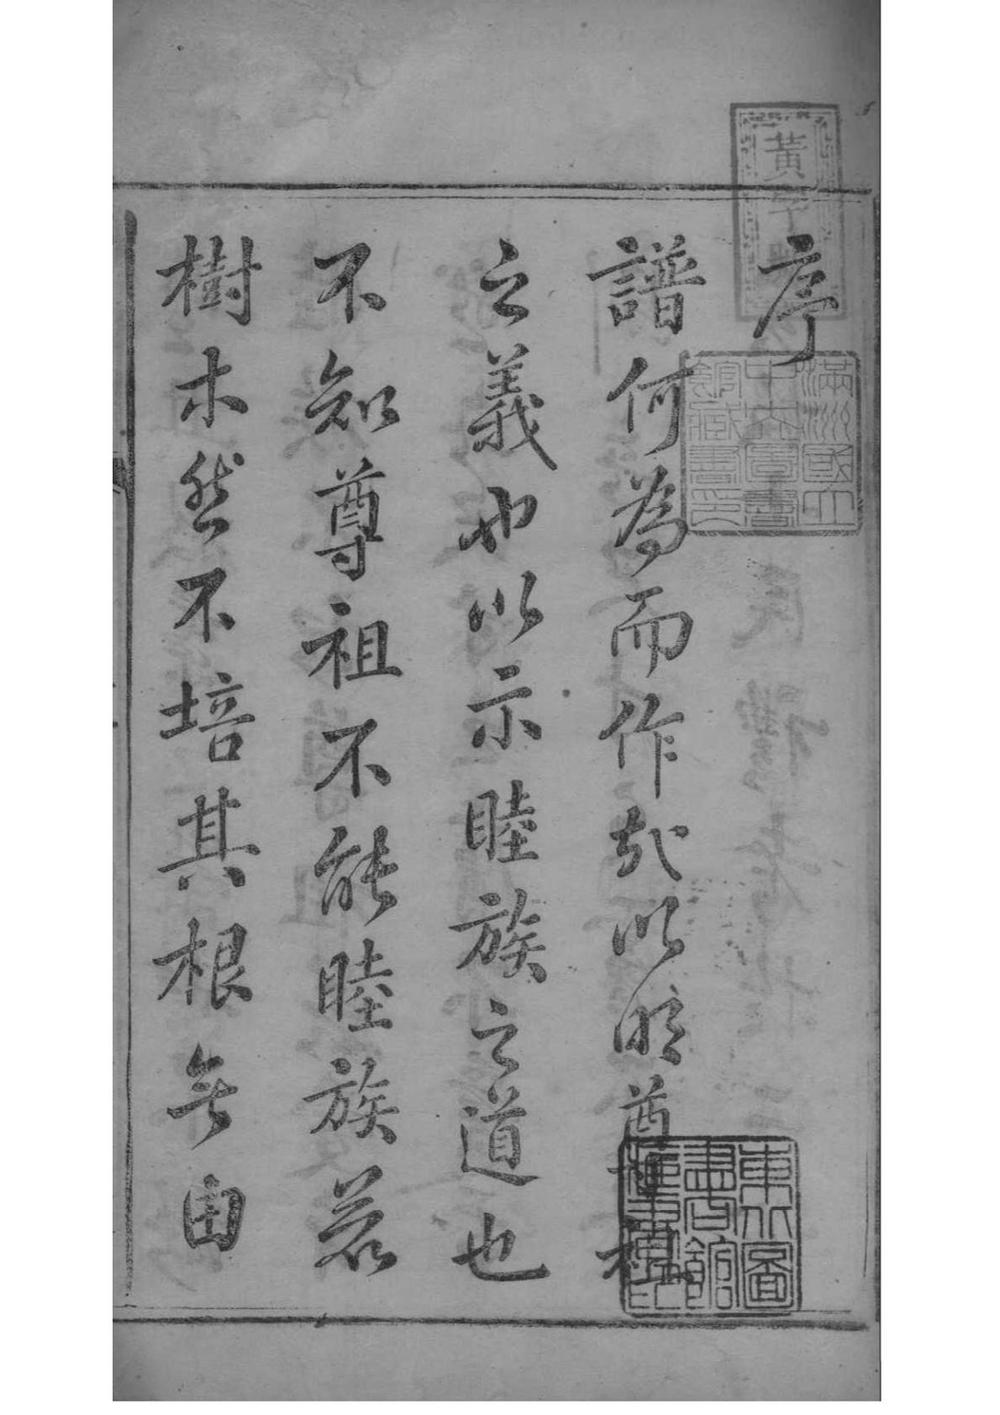 序
譜何為而作哉以明尊祖
之義也以示睦族之道也
不知尊祖不能睦族若
樹木然不培其根無由
滿洲國立
中央圖書
館藏書印
東北圖
書館